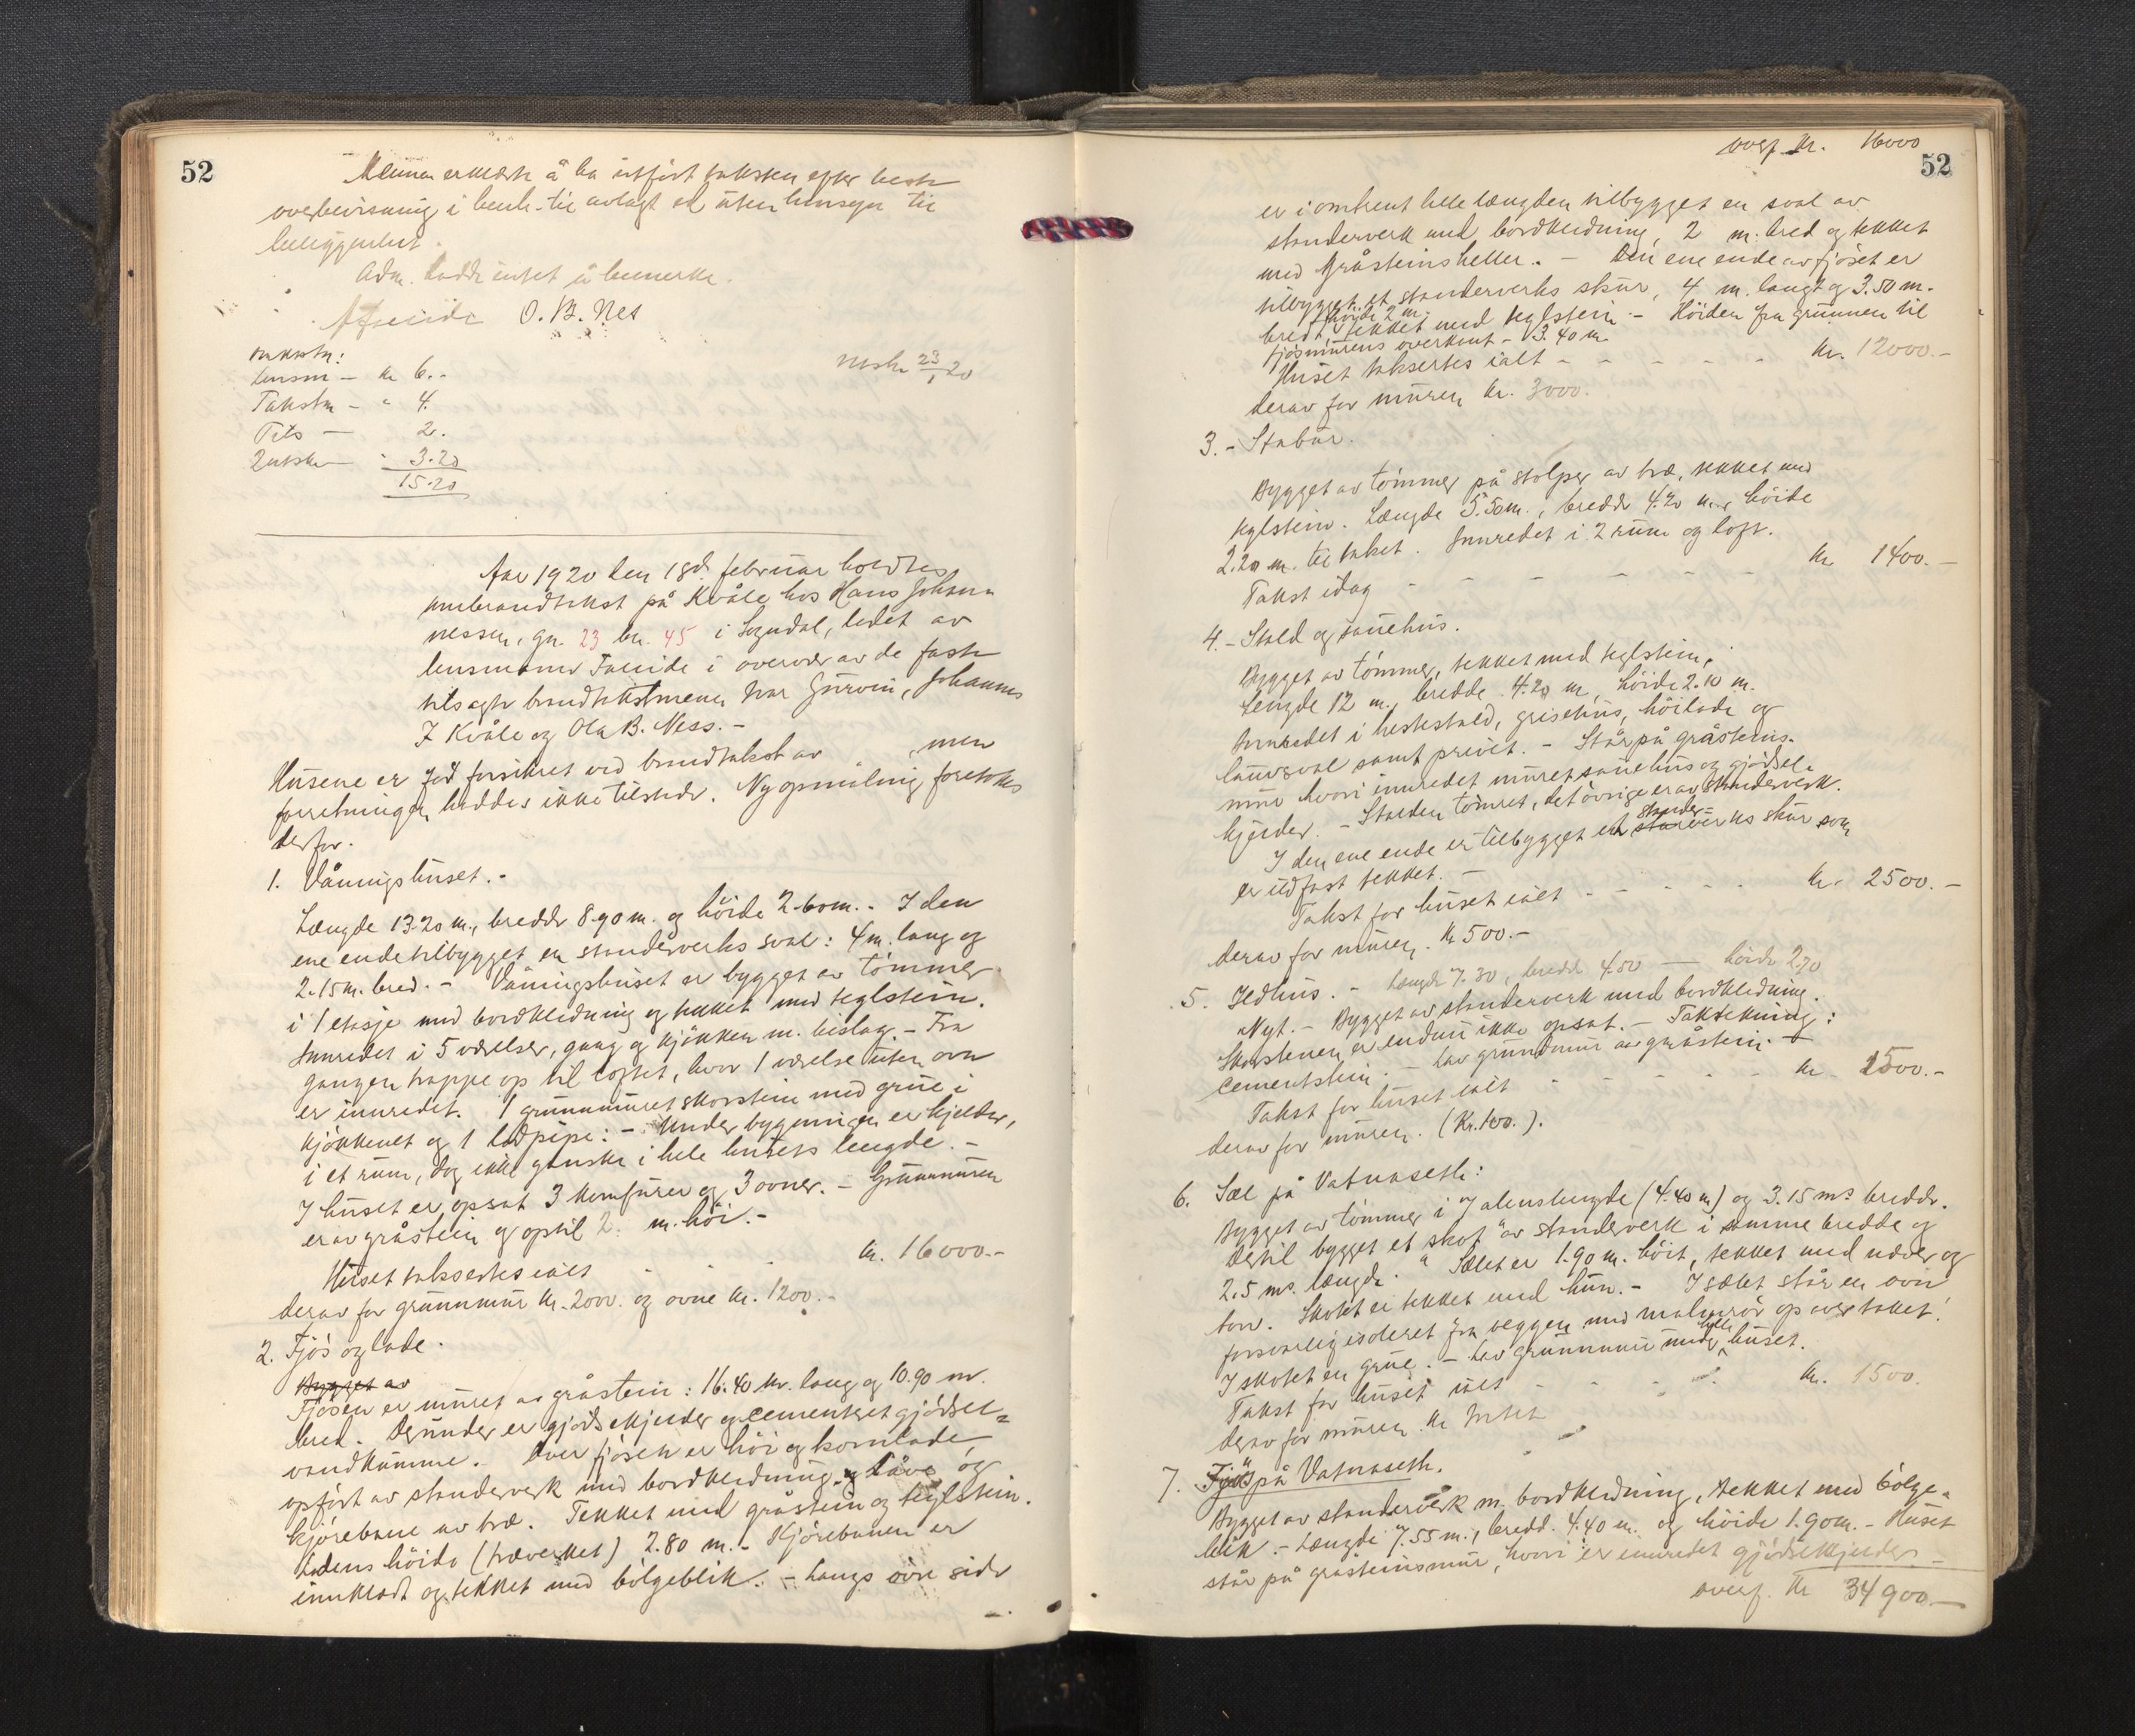 52
Mennene erklærte å ha utført taksten efter beste
overbevisning i henh. til avlagt ed uten hensyn til
Adm. hadde intet å bemerke.
O. B. Nes
Takstn:
Lensm — kr 6.-
Takstm — " 4.
Tils — 2.
" 3.20
15.20
23/1 20
Aar 1920 den 18d. februar holdtes
ombrandtakst på Kvåle hos Hans Johan-
nessen, gn. 23 bn. 45 i Sogndal, ledet av
lensmann Faleide i overvær av de faste
tilsagte brandtakstmenn Ivar Gurvin, Johannes
J Kvåle og Ola B. Ness. -
Husene er før forsikret ved brandtakst av , men
forretningen haddes ikke tilstede. Ny opmåling foretokes
derfor.
1. Våningshuset. -
Længde 13.20 m., bredde 8.90 m. og höide 2.60 m. - I den
ene ende tilbygget en standerverks sval: 4 m. lang og
2.15 m. bred. - Våningshuset er bygget av tömmer
i 1 etasje med bordklædning og tekket med teglstein.
Innredet i 5 værelser, gang og kjökken m. bislag - Fra
gangen trappe op til loftet, hvor 1 værelse uten ovn
er innredet. 1 grunnmuret skorstein med grue i
kjökkenet og 1 lodpipe: - Under bygningen er kjelder,
i et rum, dog ikke ganske i hele husets lengde. -
I huset er opsat 3 komfurer og 3 ovner. - Grunnmuren
er av gråstein og optil 2. m. höi. -
Huset takseres ialt - - - kr. 16000.-
derav for grunnmur kr. 2000. og ovne kr. 1200.-
2. Fjös og lade.
Bygget av
Fjösen er muret av gråstein: 16.40 m. lang og 10.90 m.
bred. Derunder er gjödselkjelder og cementeret gjödsel-
vandkumme. Over fjösen er höi og kornlade,
opfört av standerverk med bordklædning og låve og
kjörebane av træ. Tekket med gråstein og teglstein.
Ladens höide (træverket) 2.80 m. - Kjörebanen er
innklædt og tekket med bölgeblik. - Langs övre side
overf kr. 16000
52
er i omtrent hele længden tilbygget en sval av
standerverk med bordklædning, 2 m. bred og tekket
med gråsteinsheller. - Den ene ende av fjöset er
tilbygget et standerverks skur, 4 m. langt og 3.50 m.
höide 2 m.
bred, tekket med teglstein - Höiden fra grunnen til
fjösmurens overkant - 3.40 m.
Huset takseres ialt - - - - - kr. 12000.-
derav for muren kr. 3000.
3. - Stabur.
Bygget av tömmer på stolper av træ, tekket med
teglstein. Længde 5.50 m., bredde 4.20 m., höide
2.20 m. til taket. Innredet i 2 rum og loft.
Takst idag - - - - - - kr 1400.-
4. - Stald og sauehus.
Bygget av tömmer, tekket med teglstein,
Lengde 12 m., bredde 4.20 m, höide 2.10 m.
Innredet i hestestald, grisehus, höilade og
lauvsval samt privet. - Står på gråsteins-
mur hvori innredet muret sauehus og gjödsel-
kjelder. - Stalden tömret, det övrige er av standerverk.
stander-
I den ene ende er tilbygget et starverks skur som
er ildfast tekket. -
Takst for huset ialt - - - - - kr. 2500.-
derav for muren. kr 500.-
5. Ildhus. - Længde 7.30, bredde 4.50 — höide 2.70
Nyt. - Bygget av standerverk med bordklædning.
Skorstenen er endnu ikke opsat. - Taktekning:
Cementstein. - Lav grundmur av gråstein. -
Takst for huset ialt - - - - - kr 1500.-
derav for muren. (Kr. 100.).
6. Sæl på Vatnasete:
Bygget av tömmer i 7 alens lengde (4.40 m) og 3.15 ms bredde.
Dertil bygget et "skot" av standerverk i samme bredde og
2.5 ms. længde. Sælet er 1.90 m. höit, tekket med næver og
torv. Skotet er tekket med hun. - I sælet står en ovn
forsvarlig isoleret fra veggen med malmrör op over taket.
hele
I skotet en grue. - Lav grunnmur under huset.
Takst for huset ialt - - - - kr. 1500.
derav for muren. kr Intet
7. Fjös på Vatnasete.
Bygget av standerverk m. bordklædning, tekket med bölge-
blik. - Længde 7.55 m., bredd. 4.40 m. og höide 1.90 m. - Huset
står på gråsteinsmur, hvori er innredet gjödselkjelder -
overf. Kr 34900.-